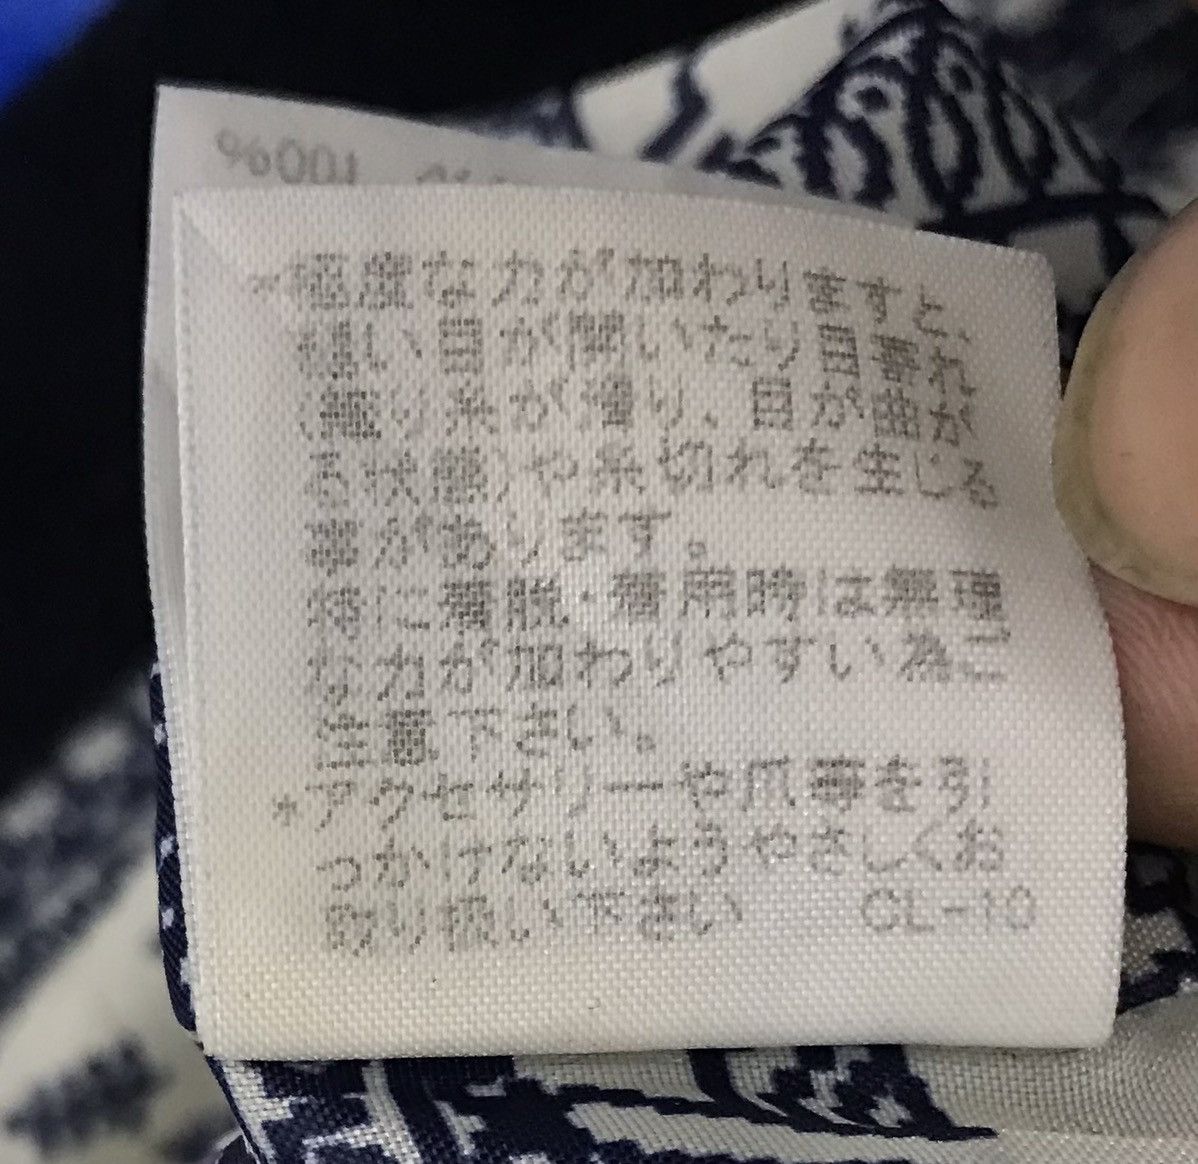 100%
*極度な力が加わりますと、
縫い目が開いたり目寄れ
(織り糸が滑り、目が曲が
る状態)や糸切れを生じる
事があります。
特に着脱・着用時は無理
な力が加わりやすい為ご
注意下さい。
*アクセサリーや爪等を引
っかけないようやさしくお
取り扱い下さい CL-10